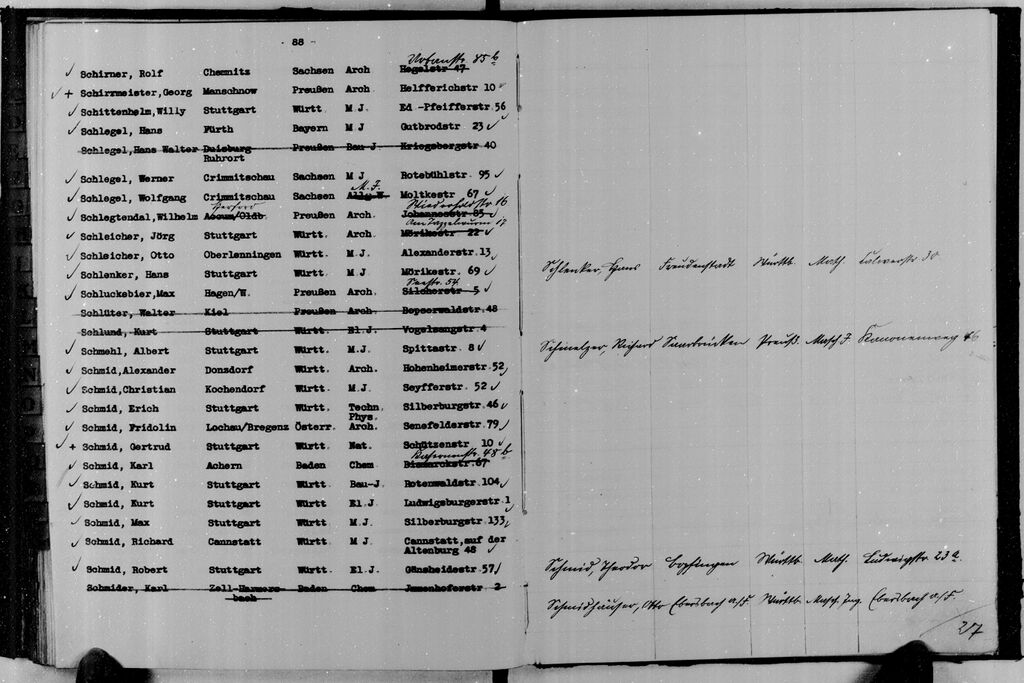 - 88 -
Urbanstr. 85 b
✓ Schirner, Rolf Chemnitz Sachsen Arch Hegelstr 47
✓ + Schirrmeister,Georg Manschnow Preußen Arch. Helfferichstr 10 ✓
✓ Schittenhelm,Willy Stuttgart Württ M J. Ed -Pfeifferstr 56
✓ Schlegel, Hans Fürth Bayern M J Gutbrodstr 23 ✓
Schlegel,Hans Walter Duisburg Preußen Bau-J Kriegsbergstr 40
Ruhrort
✓ Schlegel, Werner Crimmitschau Sachsen M J Rotebühlstr. 95 ✓
M. J.
✓ Schlegel, Wolfgang Crimmitschau Sachsen Allg.W. Moltkestr 67 ✓
Wiederholdstr 16
✓ Schlegtendal,Wilhelm Accum/Oldb. Preußen Arch. Johannesstr 83 ✓
17
✓ Schleicher, Jörg Stuttgart Württ. Arch. Mörikestr 22 ✓
✓ Schleicher, Otto Oberlenningen Württ. M.J. Alexanderstr.13 ✓
✓ Schlenker, Hans Stuttgart Württ. M.J. Mörikestr. 69 ✓
Seestr. 54
✓ Schluckebier,Max Hagen/W. Preußen Arch. Silcherstr 5 ✓
Schlüter, Walter Kiel Preußen Arch. Bopserwaldstr.48
Schlund, Kurt Stuttgart Württ. El.J. Vogelsangstr 4
✓ Schmehl, Albert Stuttgart Württ. M.J. Spittastr. 8 ✓
✓ Schmid,Alexander Donzdorf Württ. Arch. Hohenheimerstr 52 ✓
✓ Schmid,Christian Kochendorf Württ. M.J. Seyfferstr. 52 ✓
✓ Schmid, Erich Stuttgart Württ. Techn. Silberburgstr.46 ✓
Phys.
✓ Schmid, Fridolin Lochau/Bregenz Österr. Arch. Senefelderstr.79 ✓
✓ + Schmid, Gertrud Stuttgart Württ. Nat. Schützenstr 10 ✓
48 b
✓ Schmid, Karl Achern Baden Chem Bismarckstr.67
✓ Schmid, Kurt Stuttgart Württ. Bau-J. Rotenwaldstr.104 ✓
✓ Schmid, Kurt Stuttgart Württ El.J Ludwigsburgerstr 1
✓ Schmid, Max Stuttgart Württ M.J. Silberburgstr 133 ✓
✓ Schmid, Richard Cannstatt Württ. M J. Cannstatt,auf der
Altenburg 48 ✓
✓ Schmid, Robert Stuttgart Württ. El.J. Gänsheidestr.57 ✓
Schmider, Karl Zell-Harmers- Baden Chem Jusenhoferstr 2
bach
Schlenker, Hans Freudenstadt Württb. Math. Calwerstr 30
Schmelzer, Richard Saarbrücken Preuß. Masch J. Kanonenweg
Schmid, Theodor Bopfingen Württb. Math. Ludwigstr 23 a.
Schmidhäuser, Otto Ebersbach a/F. Württb. Masch. Ing. Ebersbach a/F.
27